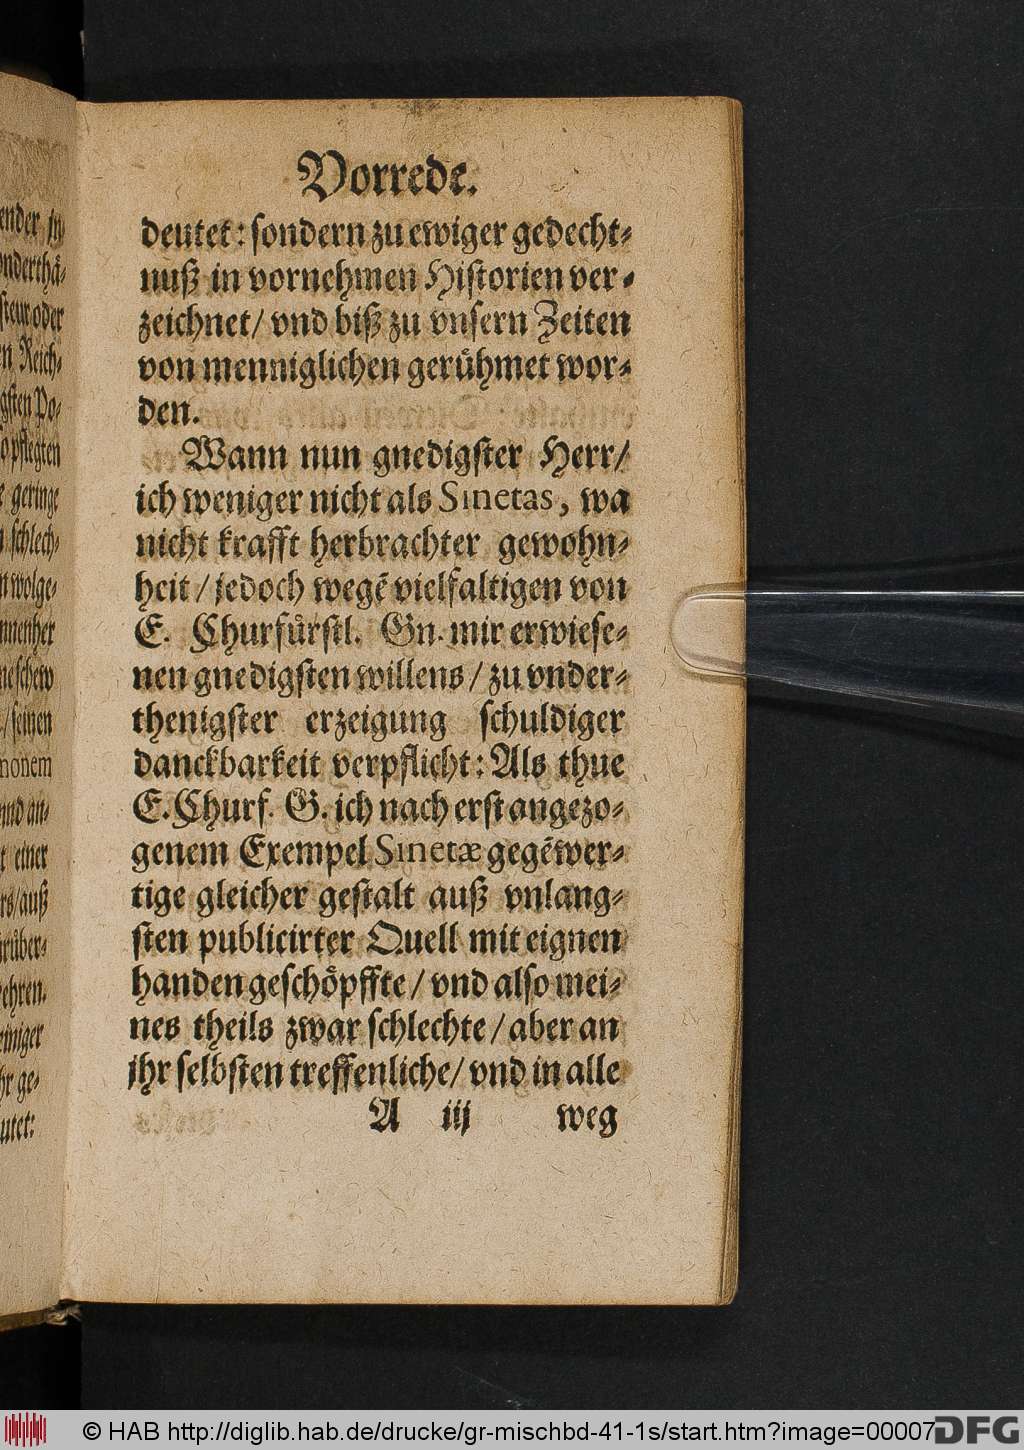 Vorrede.
deutet: sondern zu ewiger gedecht⸗
nuß in vornehmen Historien ver⸗
zeichnet/ vnd biß zu vnsern Zeiten
von menniglichen gerühmet wor⸗
den.
Wann nun gnedigster Herr/
ich weniger nicht als Sinetas, wa
nicht krafft herbrachter gewohn⸗
heit/ jedoch wegẽ vielfaltigen von
E. Churfürstl. Gn. mir erwiese⸗
nen gnedigsten willens/ zu vnder⸗
thenigster erzeigung schuldiger
danckbarkeit verpflicht: Als thue
E. Churf. G. ich nach erst angezo⸗
genem Exempel Sinetæ gegẽwer⸗
tige gleicher gestalt auß vnlang⸗
sten publicirter Quell mit eignen
handen geschöpffte/ vnd also mei⸗
nes theils zwar schlechte/ aber an
jhr selbsten treffenliche/ vnd in alle
A iij weg
ender in
onderthä⸗
steur oder
en Reich⸗
gsten Po⸗
o pflegten
e geringe
schlech⸗
n wolge⸗
nnenher
ne schew
/ seinen
monem
nnd an⸗
t einer
rs/ auß
rüber⸗
ehren.
einiger
hr ge⸗
utet:
© HAB http://diglib.hab.de/drucke/gr-mischbd-41-1s/start.htm?image=00007
DFG